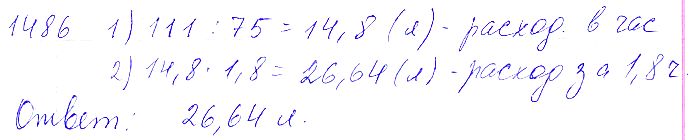 1486 1) 111 : 75 = 14,8 (л) - расход. в час
2) 14,8 · 1,8 = 26,64 (л) - расход за 1,8 ч.
Ответ: 26,64 л.